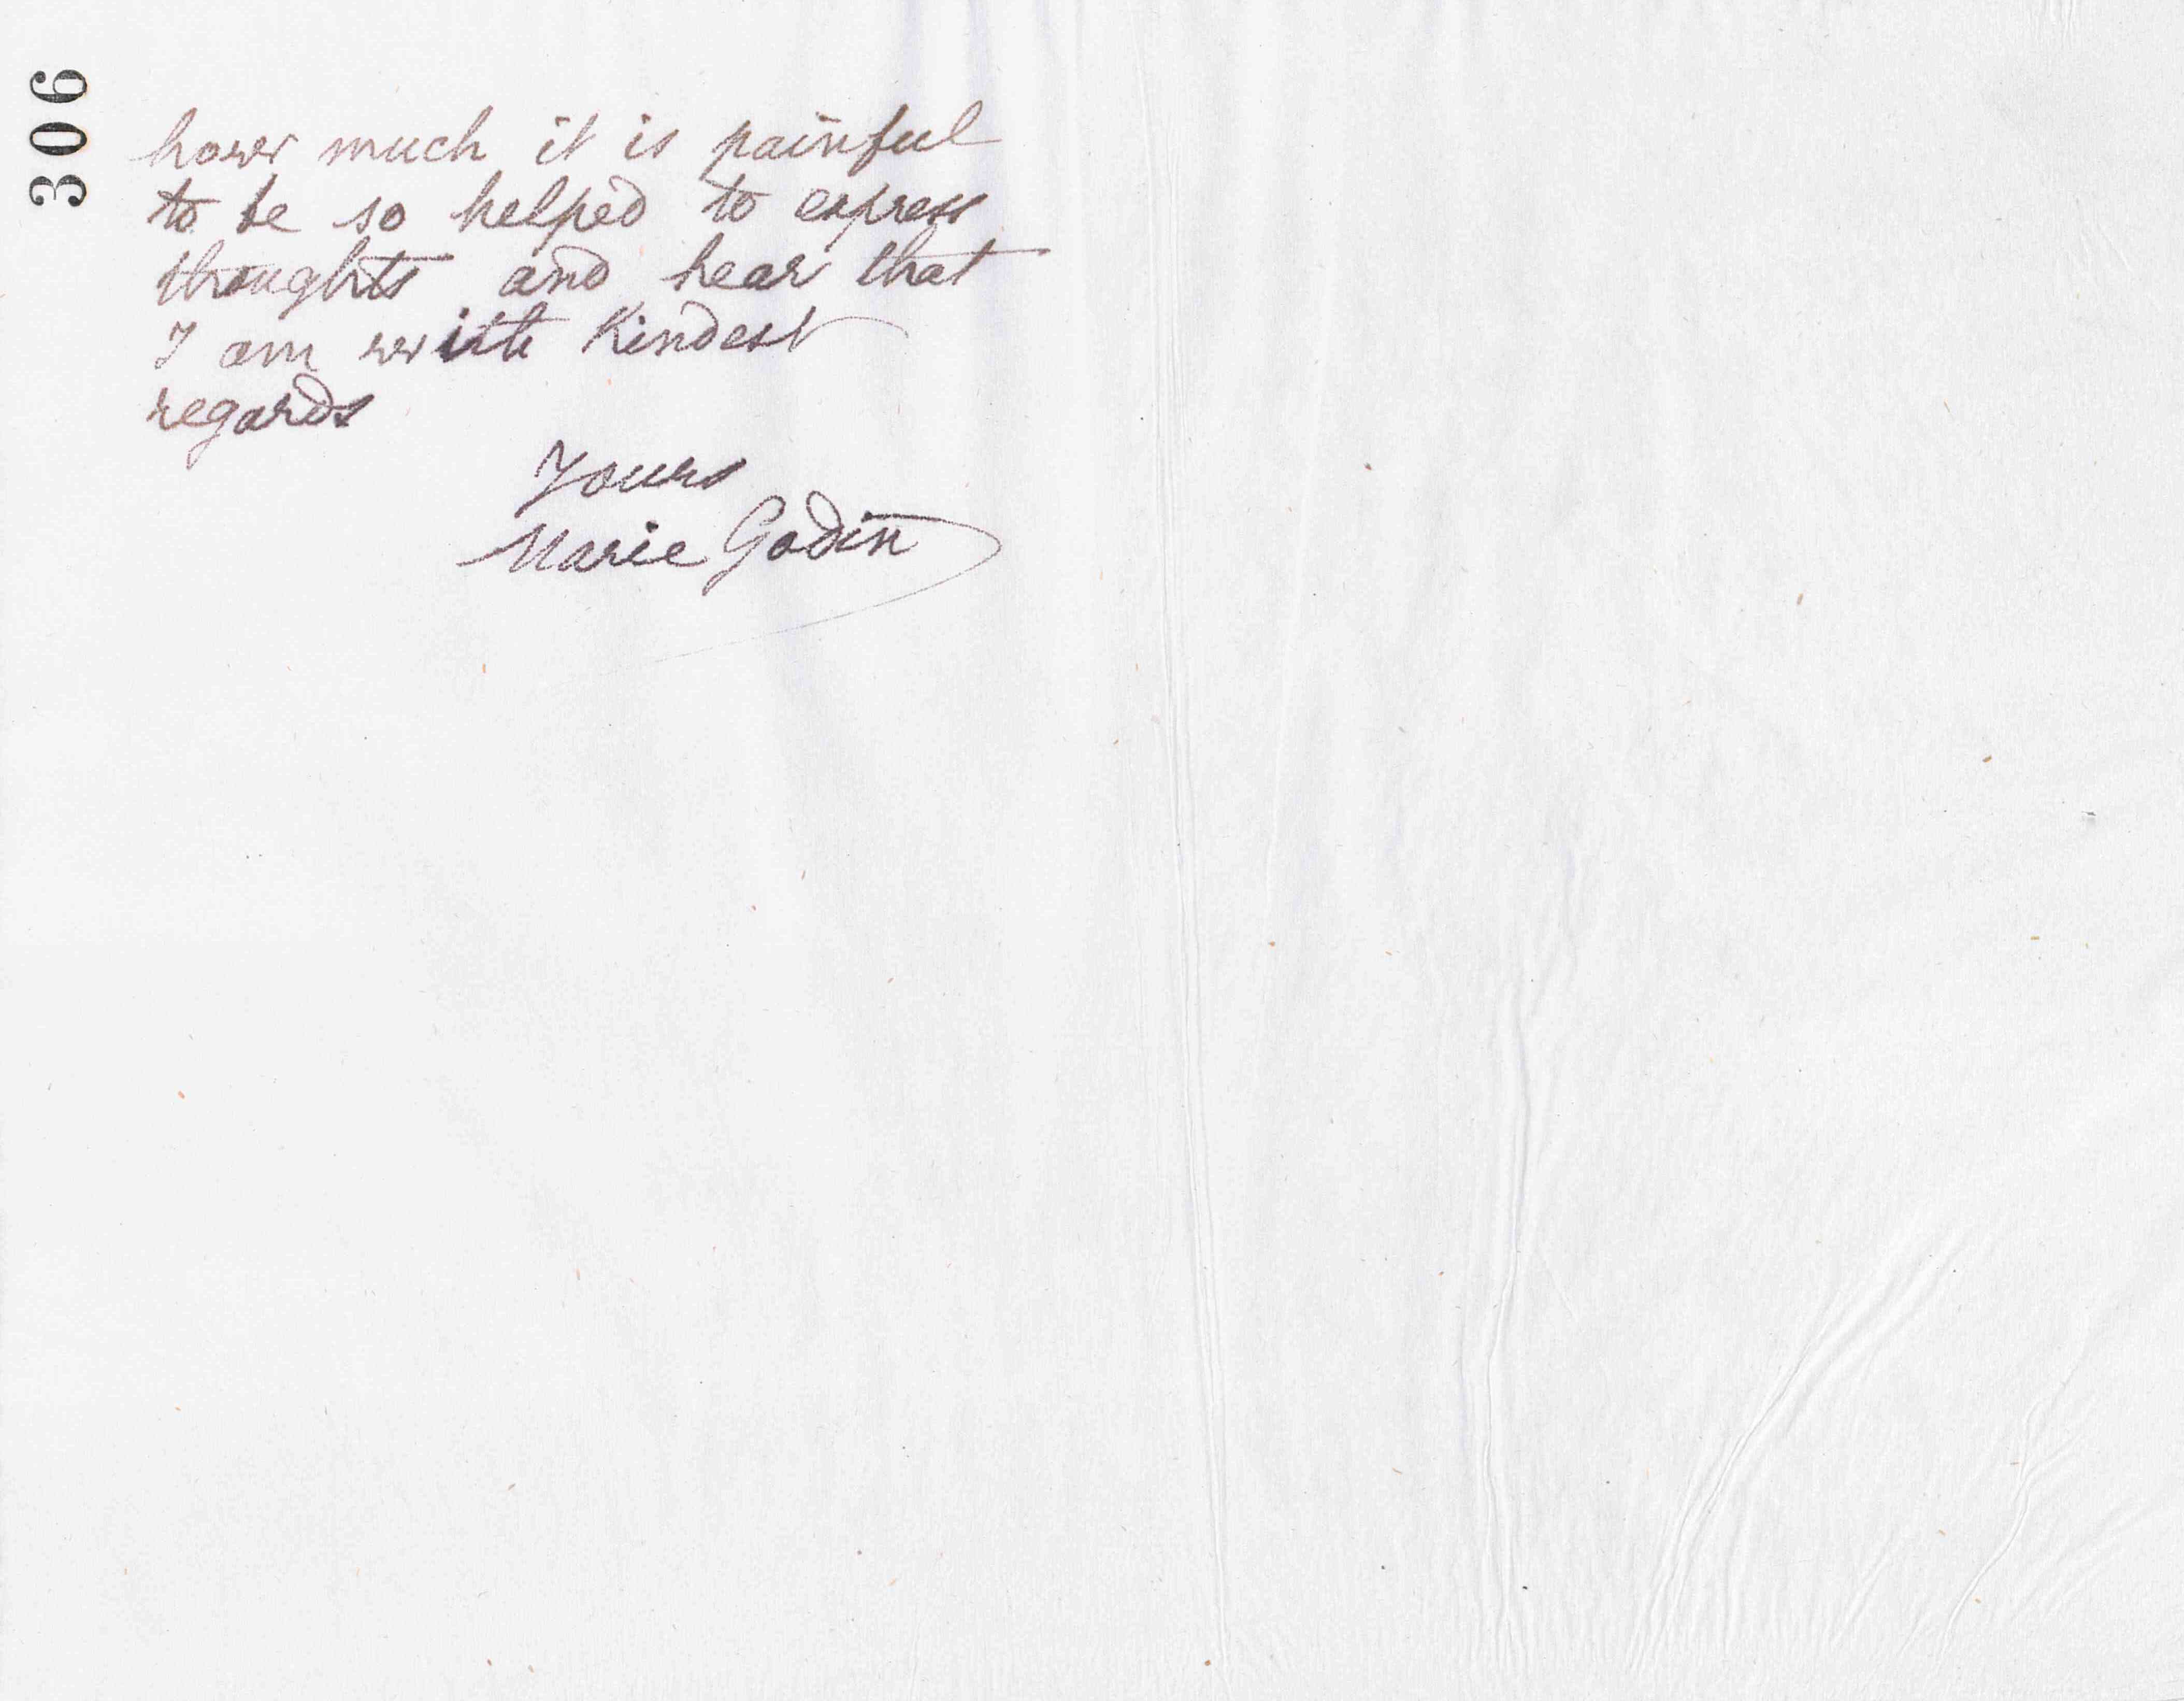 306
how much it is painful
to be so helped to express
thoughts and hear that
I am with Kindest
regards
Yours
Marie Godin